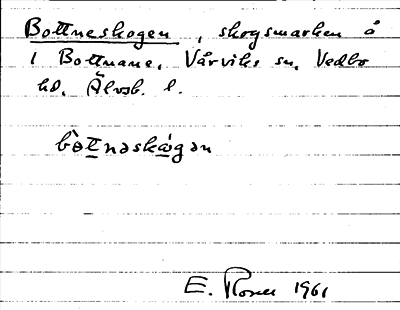 Bottneskogen, skogsmarken å
1 Bottnane, Vårviks sn, Vedbo
hd, Älvsb. l.
bòtnəskògən
E. 1961